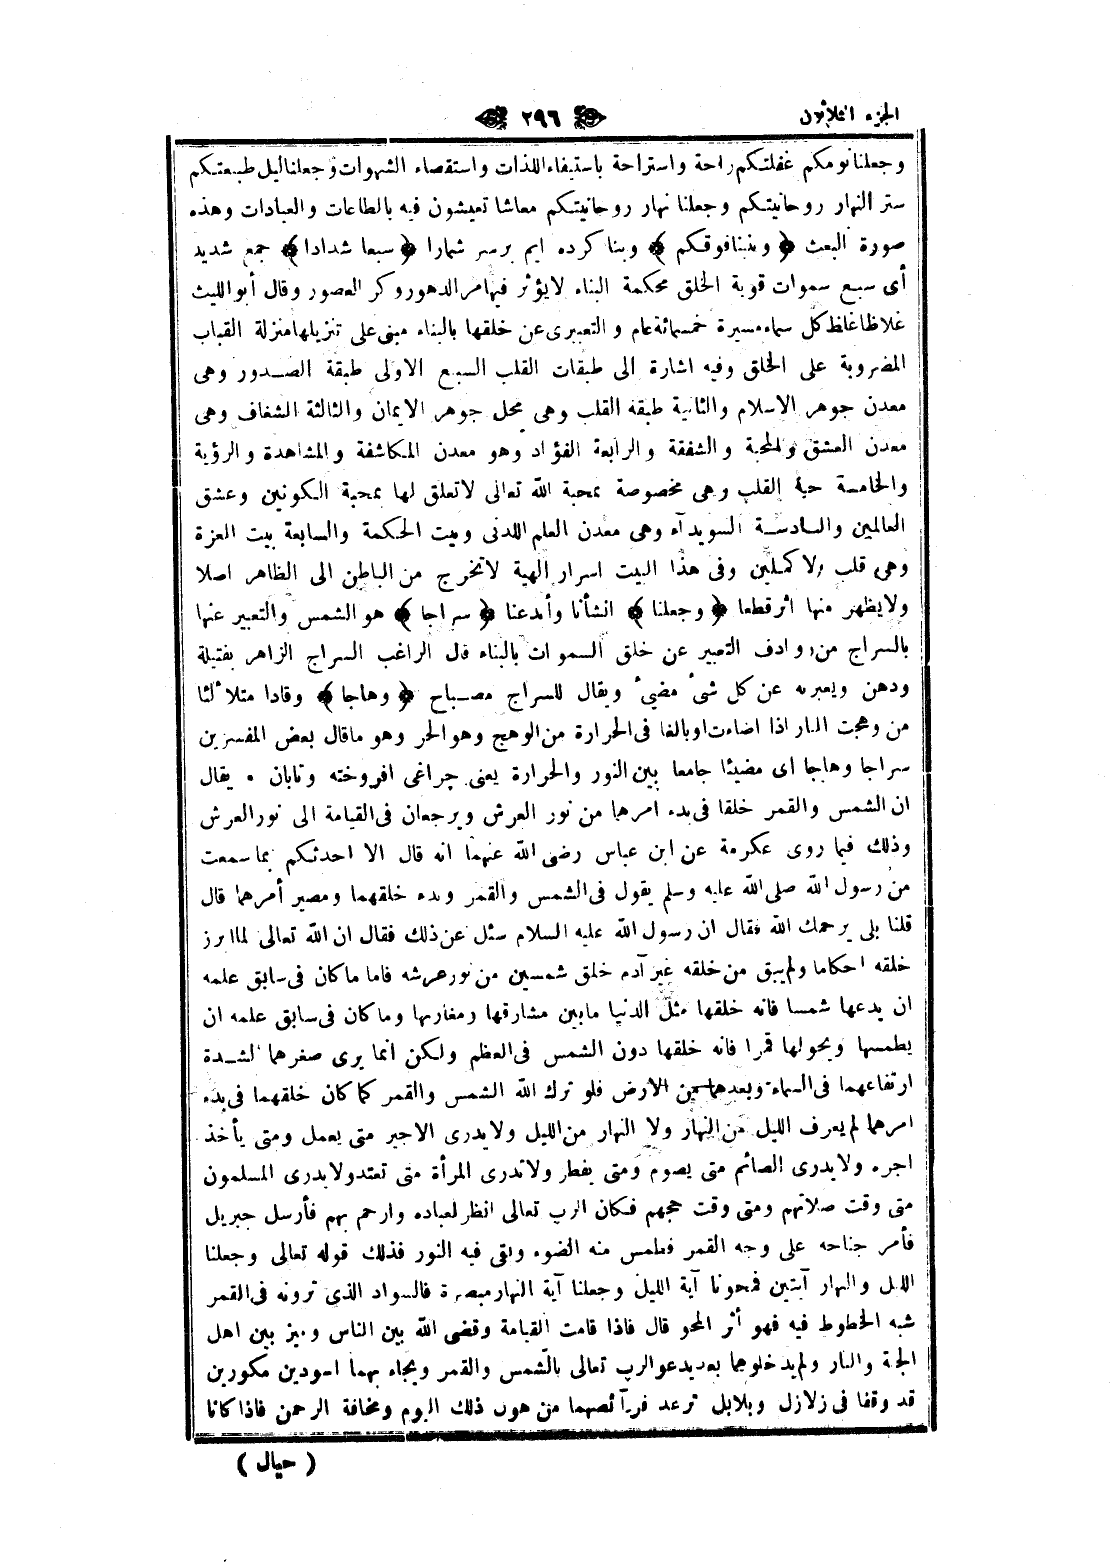 الجزء الثلاثون
٢٩٦
وجعلنا نومكم غفلتكم راحة واستراحة باستيفاء اللذات واستقصاء الشهوات وجعلنا ليل طبيعتكم
ستر النهار روحانيتكم وجعلنا نهار روحانيتكم معاشا تعيشون فيه بالطاعات والعبادات وهذه
صورة البعث ﴿ وبنينا فوقكم ﴾ وبنا كرده ايم برسر شمارا ﴿ سبعا شدادا ﴾ جمع شديد
أى سبع سموات قوية الخلق محكمة البناء لايؤثر فيها مر الدهور وكر العصور وقال أبو الليث
غلاظا غلظ كل سماء مسيرة خمسمائة عام و التعبيرى عن خلقها بالبناء مبنى على تنزيلها منزلة القباب
المضروبة على الخلق وفيه اشارة الى طبقات القلب السبع الاولى طبقة الصدور وهى
معدن جوهر الاسلام والثانية طبقة القلب وهى محل جوهر الايمان والثالثة الشغاف وهى
معدن العشق والمحبة و الشفقة و الرابعة الفؤاد وهو معدن المكاشفة و المشاهدة و الرؤية
والخامسة حبة القلب وهى مخصوصة بمحبة الله تعالى لاتعلق لها بمحبة الكونين وعشق
العالمين والسادسة السويدآء وهى معدن العلم اللدنى وبيت الحكمة والسابعة بيت العزة
وهى قلب الاكملين وفى هذا البيت اسرار الهية لاتخرج من الباطن الى الظاهر اصلا
ولايظهر منها اثر قطعا ﴿ وجعلنا ﴾ انشأنا وأبدعنا ﴿ سراجا ﴾ هو الشمس والتعبير عنها
بالسراج من روادف التعبير عن خلق السموات بالبناء قال الراغب السراج الزاهر بفتيلة
ودهن ويعبربه عن كل شئ مضيئ ويقال للسراج مصباح ﴿ وهاجا ﴾ وقادا متلألئا
من وهجت النار اذا اضاءت او بالغا فى الحرارة من الوهج وهو الحر وهو ماقال بعض المفسرين
سراجا وهاجا اى مضيئا جامعا بين النور والحرارة يعنى چراغى افروخته وتابان • يقال
ان الشمس والقمر خلقا فى بدء امرهما من نور العرش ويرجعان فى القيامة الى نور العرش
وذلك فيما روى عكرمة عن ابن عباس رضى الله عنهما انه قال الا احدثكم بما سمعت
من رسول الله صلى الله عليه وسلم يقول فى الشمس والقمر وبدء خلقهما ومصير أمرهما قال
قلنا بلى يرحمك الله فقال ان رسول الله عليه السلام سئل عن ذلك فقال ان الله تعالى لما ابرز
خلقه احكاما ولم يبق من خلقه غير آدم خلق شمسين من نور عرشه فاما ماكان فى سابق علمه
ان يدعها شمسا فانه خلقها مثل الدنيا مابين مشارقها ومغاربها وماكان فى سابق علمه ان
يطمسها ويحولها قمرا فانه خلقها دون الشمس فى العظم ولكن انما يرى صغرهما لشدة
ارتفاعهما فى السماء وبعدهما من الارض فلو ترك الله الشمس والقمر كما كان خلقهما فى بدء
امرهما لم يعرف الليل من النهار ولا النهار من الليل ولايدرى الاجير متى يعمل ومتى يأخذ
اجره ولايدرى الصائم متى يصوم ومتى يفطر ولاتدرى المرأة متى تعتد ولايدرى المسلمون
متى وقت صلاتهم ومتى وقت حجهم فكان الرب تعالى انظر لعباده وارحم بهم فأرسل جبريل
فأمر جناحه على وجه القمر فطمس منه الضوء وبقى فيه النور فذلك قوله تعالى وجعلنا
الليل والنهار آيتين فمحونا آية الليل وجعلنا آية النهار مبصرة فالسواد الذى ترونه فى القمر
شبه الخطوط فيه فهو أثر المحو قال فاذا قامت القيامة وقضى الله بين الناس وميز بين اهل
الجنة والنار ولم يدخلوهما بعد يدعو الرب تعالى بالشمس والقمر ويجاء بهما اسودين مكورين
قد وقفا فى زلازل وبلابل ترعد فرآئصهما من هول ذلك اليوم ومخافة الرحمن فاذا كانا
( حيال )